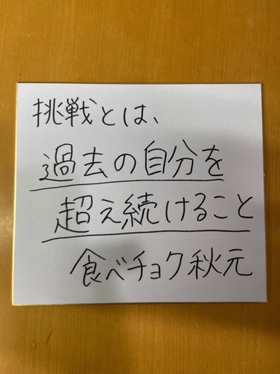 挑戦とは、
過去の自分を
超え続けること
食べチョク秋元